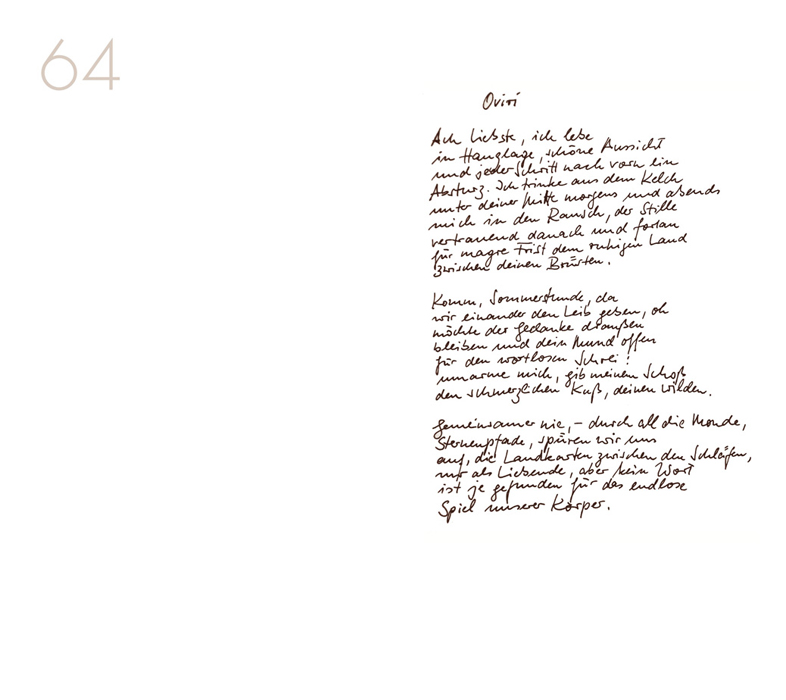 64
Oviri
Ach Liebste, ich lebe
in Hanglage, schöne Aussicht
und jeder Schritt nach vorn ein
Absturz. Ich trinke aus dem Kelch
unter deiner Mitte morgens und abends
mich in den Rausch, der Stille
vertrauend danach und fortan
für magre Frist dem ruhigen Land
zwischen deinen Brüsten.
Komm, Sommerstunde, da
wir einander den Leib geben, oh
möchte der Gedanke draußen
bleiben und dein Mund offen
für den wortlosen Schrei!
umarme mich, gib meinem Schoß
den schmerzlichen Kuß, deinen wilden.
Gemeinsamer nie, – durch all die Monde,
Sternenpfade, spüren wir uns
auf, die Landkarten zwischen den Schläfen,
nur als Liebende, aber kein Wort
ist je gefunden für das endlose
Spiel unserer Körper.